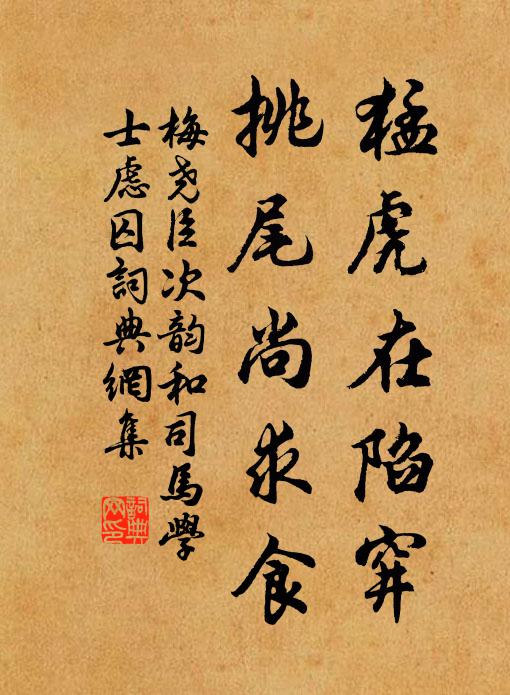 猛虎在陷穽
挑尾尚求食
梅尧臣次韵和司馬學
士慮囚詞典網集
詞典